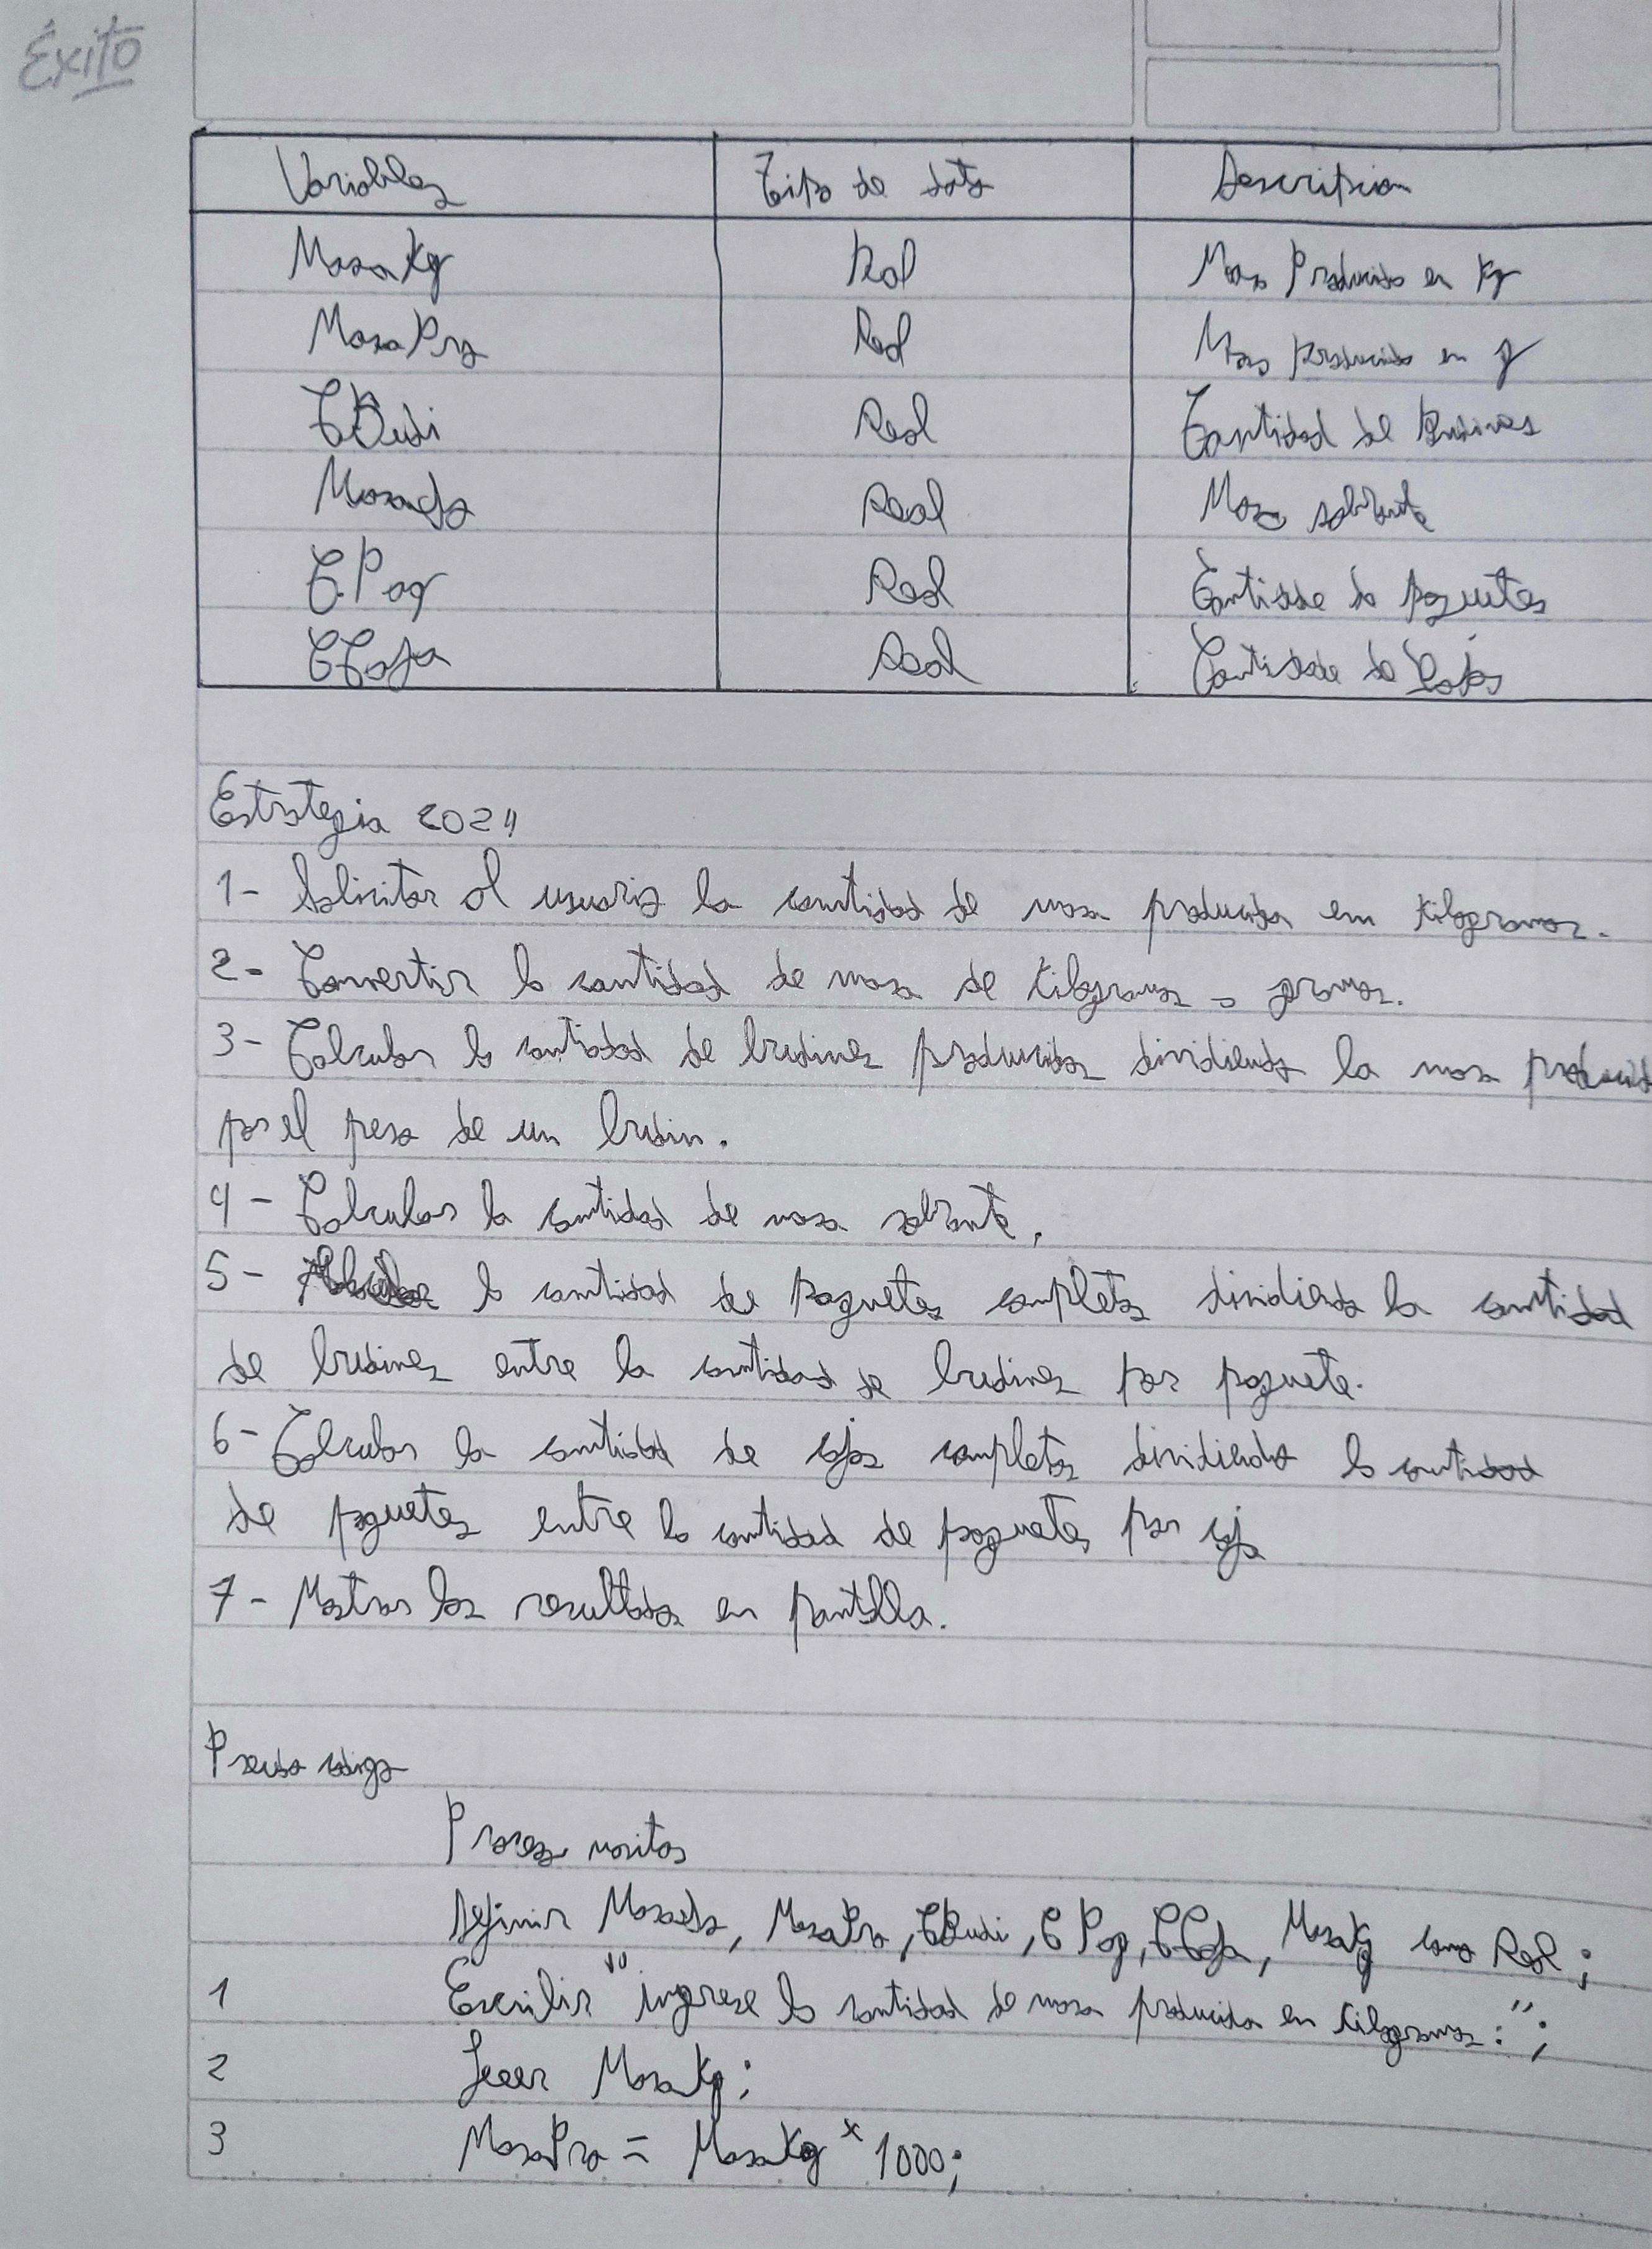 Éxito
Variables Tipo de dato Descripcion
MasaKg Real Masa Producida en Kg
MasaPro Real Masa producida en g
CBudi Real Cantidad de Budines
Real Masa sobrante
CPaq Real Cantidade de paquetes
CCaja Real Cantidade de Cajas
Estrategia 2024
1- Solicitar al usuario la cantidad de masa producida en kilogramos.
2- Convertir la cantidad de masa de kilogramos a gramos.
3- Calcular la cantidad de budines producidos dividiendo la masa producida
por el peso de un budin.
4- Calcular la cantidad de masa sobrante.
5- la cantidad de paquetes completos dividiendo la cantidad
de budines entre la cantidad de budines por paquete.
6- Calcular la cantidad de cajas completas dividiendo la cantidad
de paquetes entre la cantidad de paquetes por caja
7- Mostrar los resultados en pantalla.
Pseudo codigo
Proceso
Definir MasaPro, CBudi, CPaq, CCaja, MasaKg como Real;
1 Escribir "ingrese la cantidad de masa producida en kilogramos:";
2 Leer MasaKg;
3 MasaPro = MasaKg * 1000;